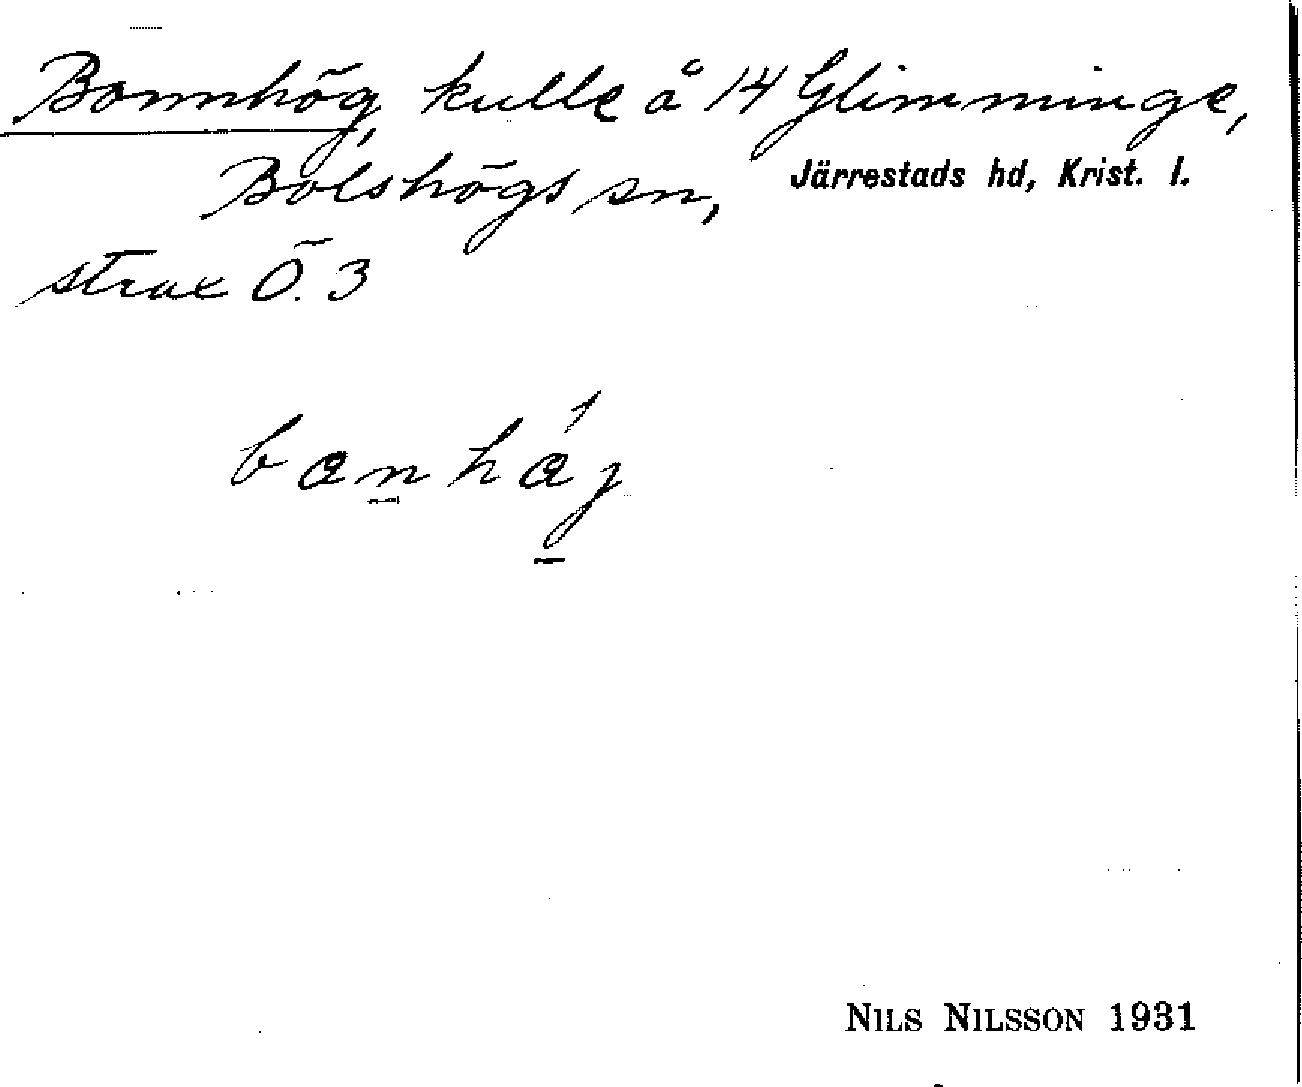 Bonnhög, kulle å 14 Glimminge,
Bolshögs sn, Järrestads hd, Krist. l.
strax Ö. 3
NILS NILSSON 1931